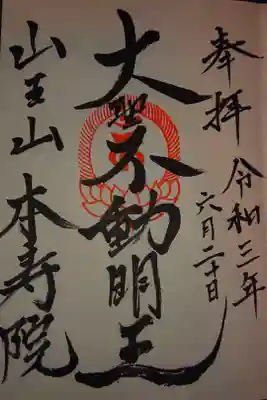 奉拝
令和三年
六月二十日
大聖不動明王
山王山
本寿院